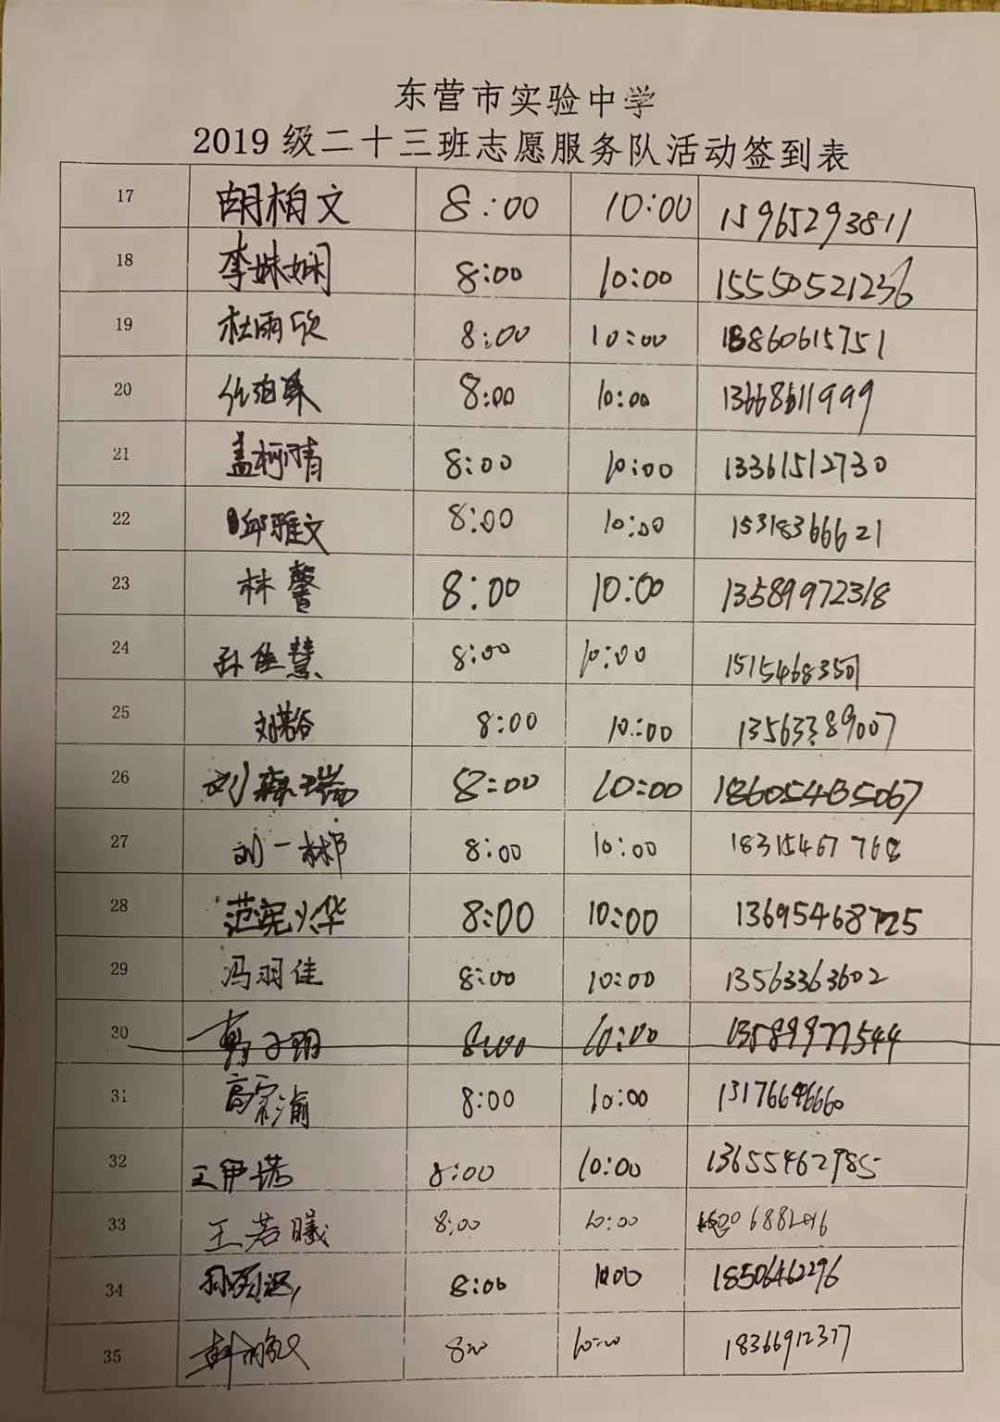 东营市实验中学
2019级二十三班志愿服务队活动签到表
17 胡柏文 8:00 10:00 15965293811
18 李姝娴 8:00 10:00 15550521236
19 杜雨欣 8:00 10:00 18860615751
20 8:00 10:00 13668611999
21 盖柯晴 8:00 10:00 13361512730
22 邱雅文 8:00 10:00 15318366621
23 林馨 8:00 10:00 13589972318
24 孙佳慧 8:00 10:00 15154683501
25 刘若谷 8:00 10:00 13563389007
26 刘森瑞 8:00 10:00 18605465067
27 刘一彬 8:00 10:00 18315467768
28 范宪华 8:00 10:00 13695468725
29 冯羽佳 8:00 10:00 13563363602
30 8:00 10:00 13589977544
31 高宗渝 8:00 10:00 13176696660
32 王伊诺 8:00 10:00 13655462985
33 王若曦 8:00 10:00
34 8:00 10:00 18506462296
35 8:00 10:00 18366912377